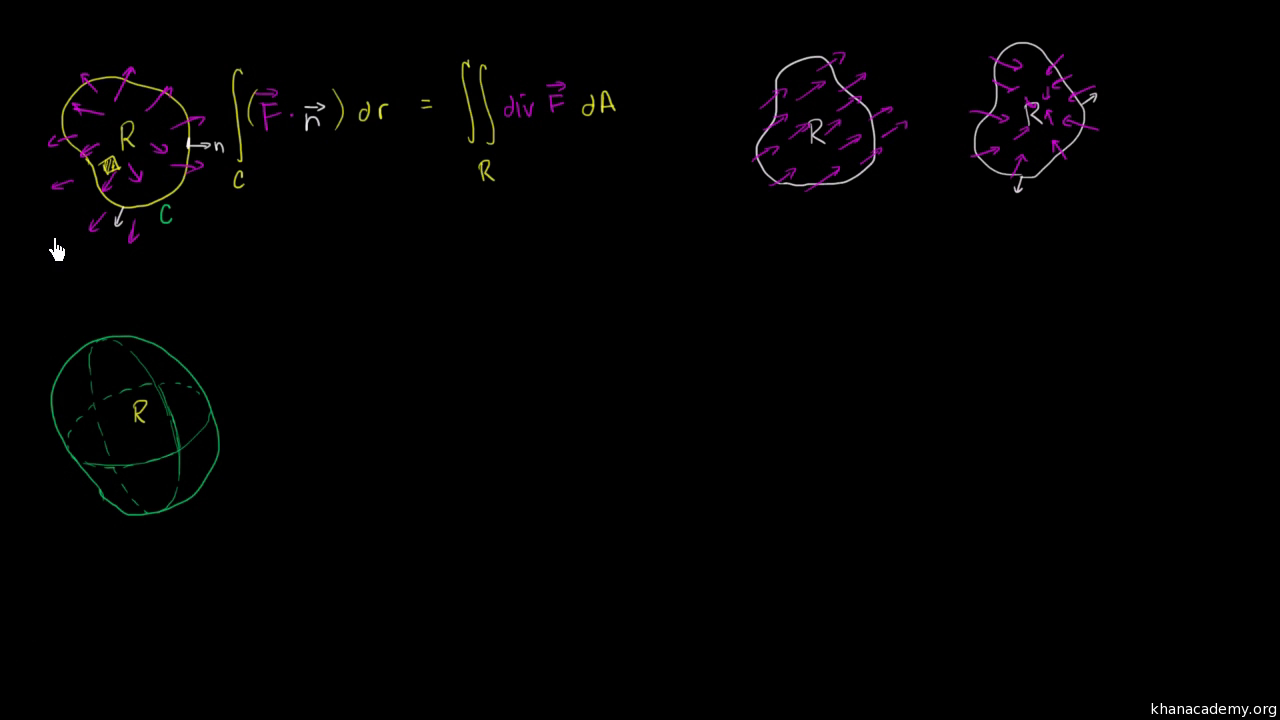 R
n
C
∫ ( F⃗ · n⃗ ) dr = ∬ div F⃗ dA
C R
R
R
R
khanacademy.org